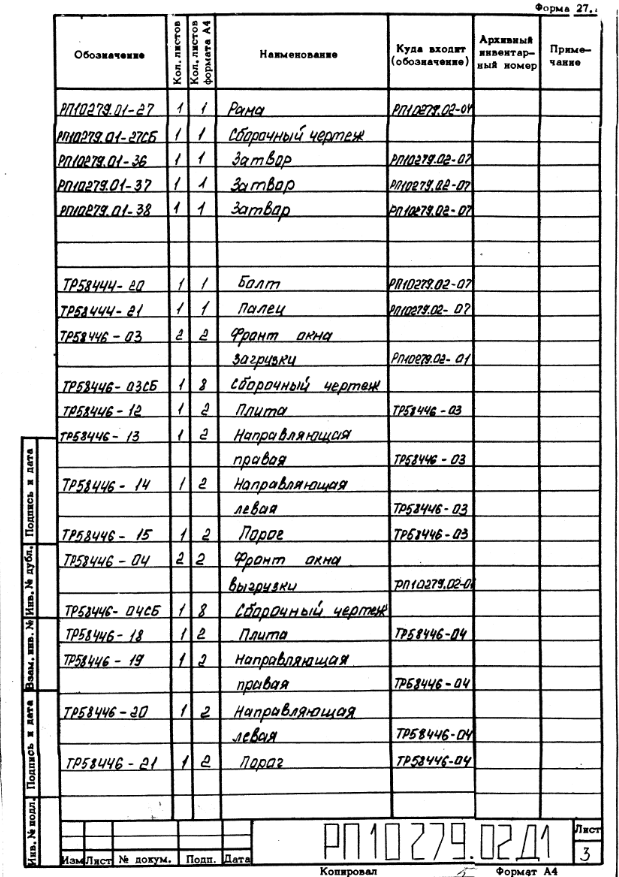 Форма 27.
Обозначение Кол. листов Кол. листов формата А4 Наименование Куда входит (обозначение) Архивный инвентарный номер Примечание
РП10279.01-27 1 1 Рама РП10279.02-04
РП10279.01-27СБ 1 1 Сборочный чертеж
РП10279.01-36 1 1 Затвор РП10279.02-07
РП10279.01-37 1 1 Затвор РП10279.02-07
РП10279.01-38 1 1 Затвор РП10279.02-07
ТР58444-20 1 1 Болт РП10279.02-07
ТР58444-21 1 1 Палец РП10279.02-07
ТР58446-03 2 2 Фронт окна
загрузки РП10279.02-01
ТР58446-03СБ 1 8 Сборочный чертеж
ТР58446-12 1 2 Плита ТР58446-03
ТР58446-13 1 2 Направляющая
правая ТР58446-03
ТР58446-14 1 2 Направляющая
левая ТР58446-03
ТР58446-15 1 2 Порог ТР58446-03
ТР58446-04 2 2 Фронт окна
выгрузки
ТР58446-04СБ 1 8 Сборочный чертеж
ТР58446-18 1 2 Плита ТР58446-04
ТР58446-19 1 2 Направляющая
правая ТР58446-04
ТР58446-20 1 2 Направляющая
левая ТР58446-04
ТР58446-21 1 2 Порог ТР58446-04
Подпись и дата
Инв. № дубл.
Взам. инв. №
Подпись и дата
Инв. № подл.
РП10279.02Д1
Лист
3
Изм Лист № докум. Подп. Дата
Копировал Формат А4